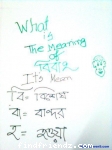 What
is
The Meaning
of
বিবাহ
It's Mean
বি = বিশেষ
বা = বান্দর
হ = হওয়া